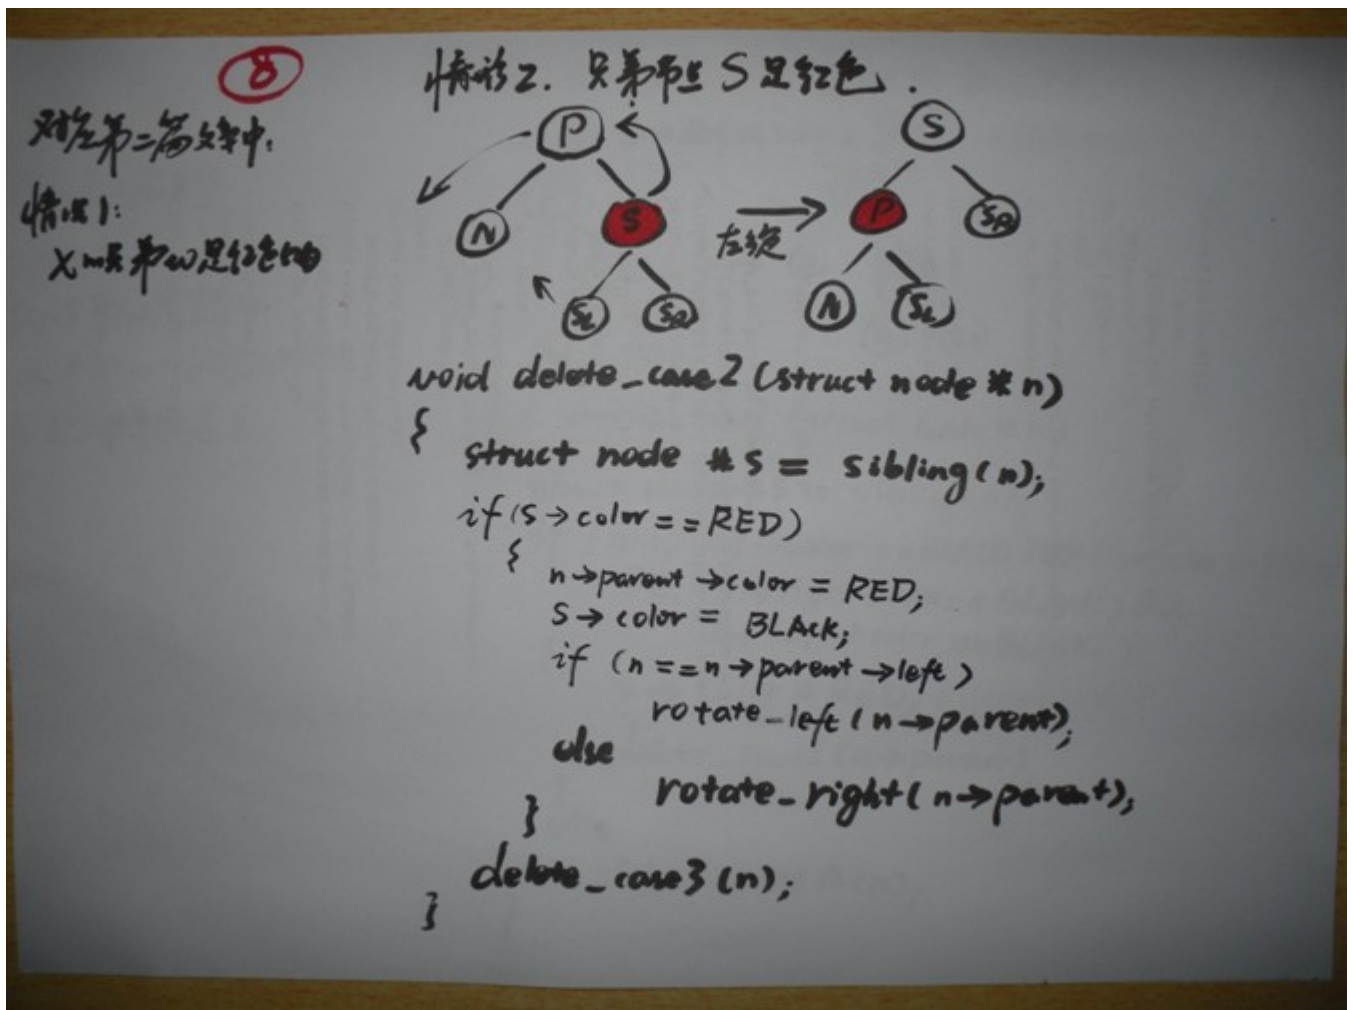 8
对应第二篇文章中:
情况1:
x的兄弟w是红色的
情形2. 兄弟节点S是红色.
P
N
S
SL
SR
左旋
S
P
SR
N
SL
void delete_case2(struct node *n)
{
struct node *s = sibling(n);
if(s→color==RED)
{
n→parent→color = RED;
S→color = BLACK;
if (n==n→parent→left)
rotate_left(n→parent);
else
rotate_right(n→parent);
}
delete_case3(n);
}